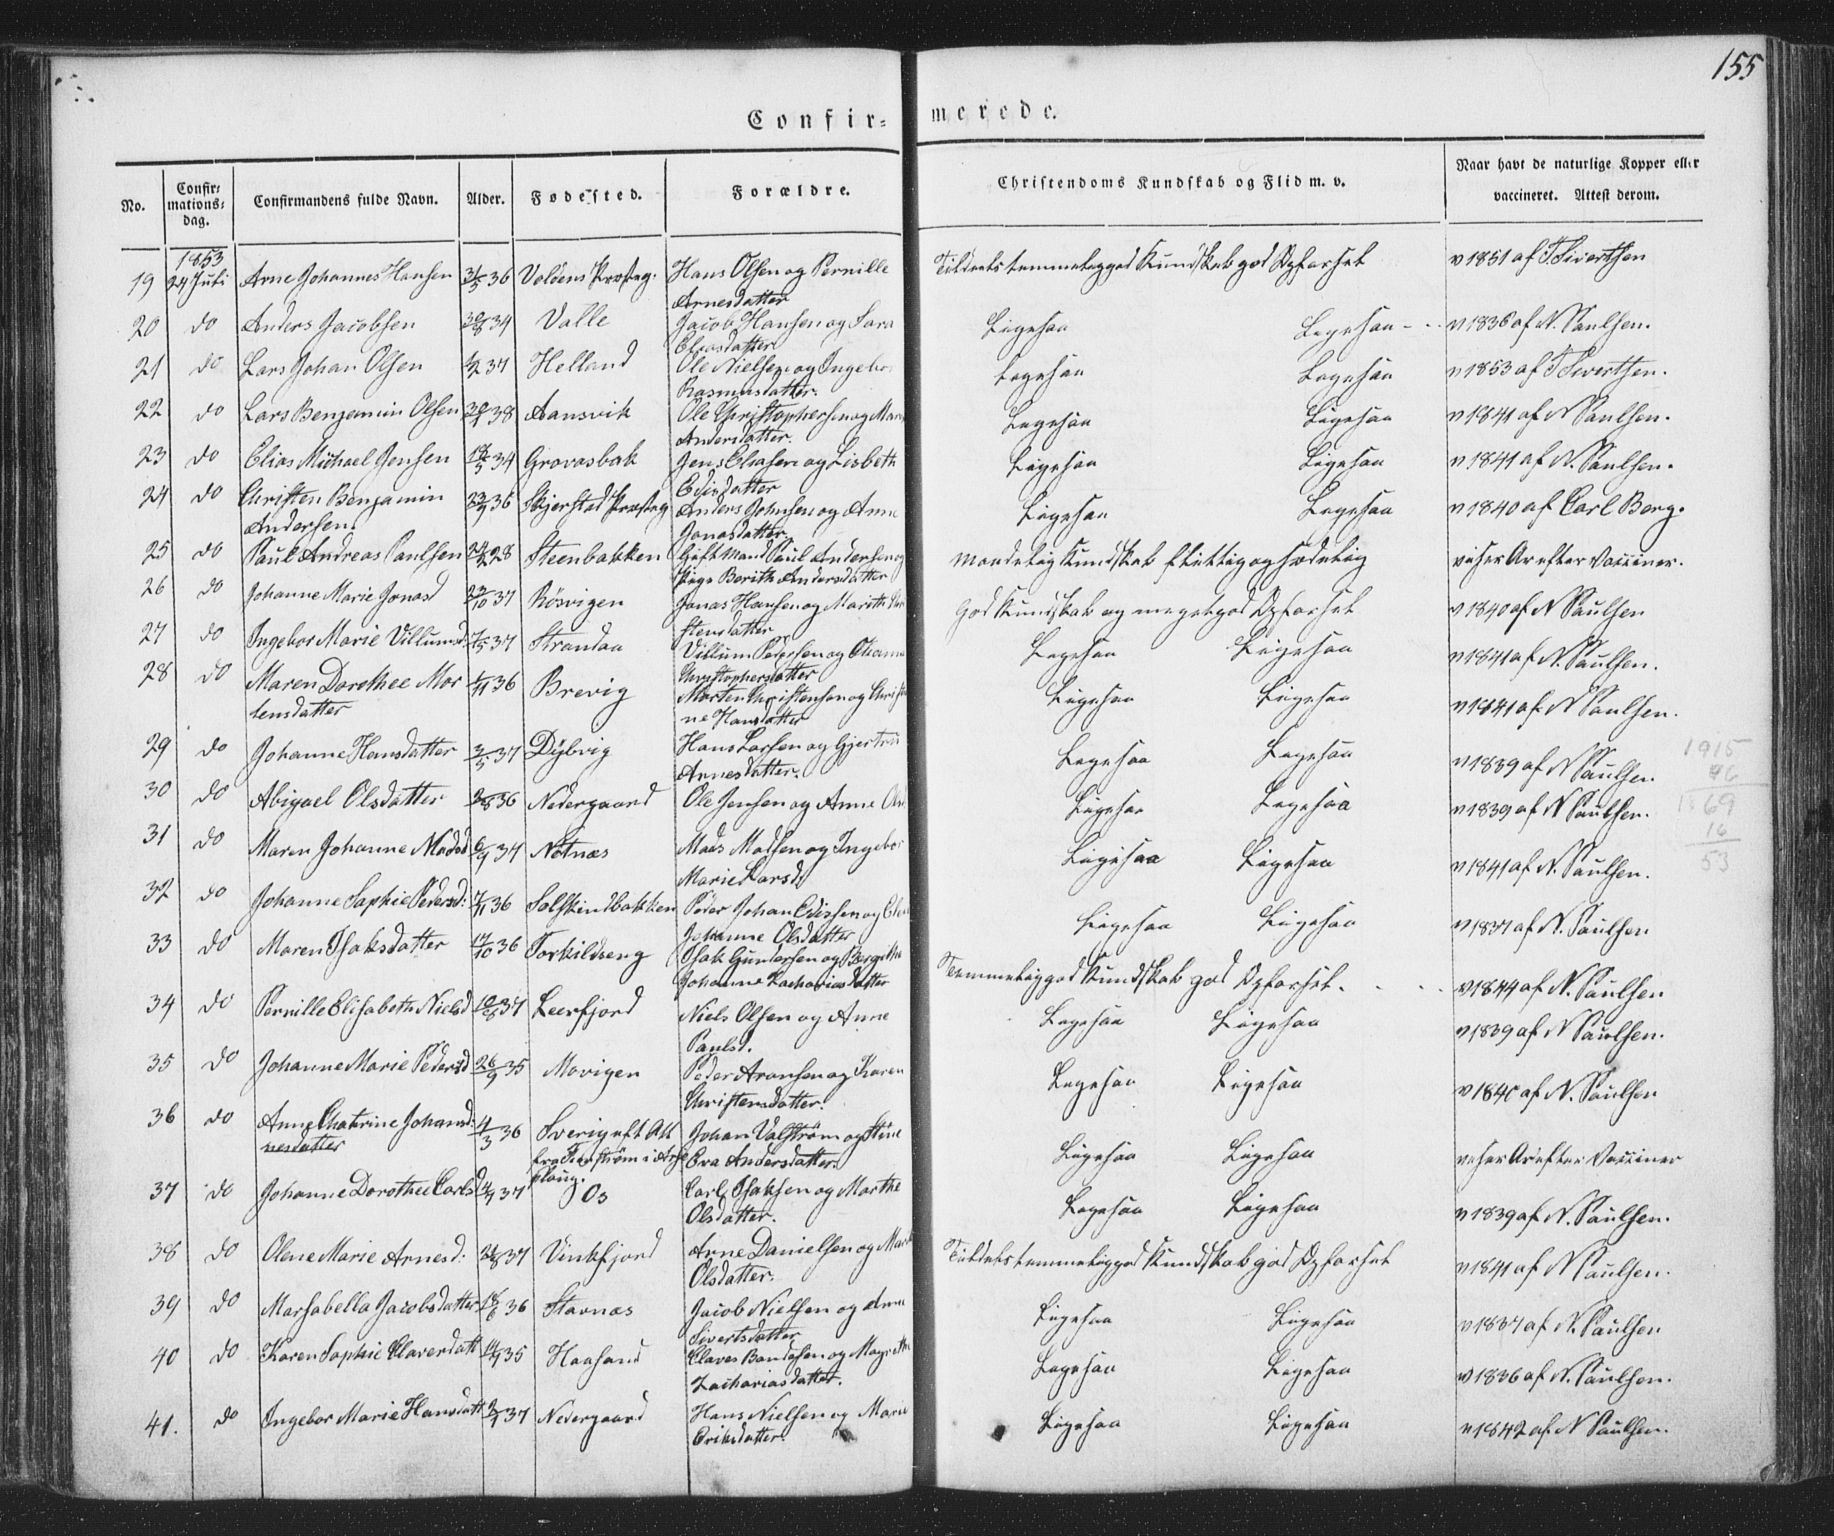 155
Confir= merede.
No. Confir= mations= dag. Confirmandens fulde Navn. Alder. Fødested. Forældre. Christendoms Kundskab og Flid m. v. Naar havt de naturlige Kopper eller vaccineret. Attest derom.
1853
19 24 Juli Arne Johannes Hansen 31/5 36 Hans Olsen og Pernille Arnesdatter Kundskab god v 1851 af Sivertsen
20 do Anders Jacobsen 34 Valle Jacob Hansen og Sara Eliasdatter Ligesaa Ligesaa v 1836 af N. Saulsen.
21 do Lars Johan Olsen 37 Helland Ole Nielsen og Ingebor Rasmusdatter. Ligesaa Ligesaa v 1853 af Sivertsen.
22 do Lars Benjamin Olsen 38 Aansvik Ole Christophersen og Andersdatter. Ligesaa Ligesaa v 1841 af N Saulsen.
23 do Elias Michael Jensen 34 Grovasbak Jens Eliasen og Lisbeth Ligesaa Ligesaa v 1841 af N. Saulsen.
24 do Christen Benjamin Andersen. 36 Skjerstad Anders Johnsen og Anne Jonasdatter. Ligesaa Ligesaa v 1840 af Carl Borg.
25 do Paul Andreas Paulsen 28 Steenbakken Gift Mand Paul Andersen og Pige Berith Andersdatter Kundskab flittig og sædelig efter Vacciner.
26 do Johanne Marie Jonasd 37 Røsvigen Jonas Hansen og Marith stensdatter god Kundskab og meget god v 1840 af N Saulsen
27 do Ingebor Marie Villumsd: 37 Strandaa Villum Petersen og Christophersdatter Ligesaa Ligesaa v 1841 af N. Saulsen.
28 do Maren Dorothee Mor tensdatter 36 Brevig Morten Christensen og Christi ne Hansdatter Ligesaa Ligesaa v 1841 af N Saulsen.
29 do Johanne Hansdatter 37 Dybvig Hans Larsen og Gjertru Arnesdatter. Ligesaa Ligesaa v 1839 af N Saulsen.
30 do Abigael Olsdatter 36 Nedergaard Ole Jensen og Anne Ligesaa Ligesaa v 1839 af N Saulsen.
31 do Maren Johanne Madsd 37 Nøtnæs Mads Madsen og Ingebor Marie Larsd. Ligesaa Ligesaa v 1841 af N. Saulsen.
1915
69
16
53
32 do Johanne Sophie Pedersd: 36 Solskindbakken Peder Johan Edissen og Johanne Olsdatter Ligesaa Ligesaa v 1837 af N. Saulsen
33 do Maren Isaksdatter 36 Torkildseng Isak Gundersen og Johanne Zachariasdatter Temmelig god Kundskab god v 1844 af N. Saulsen
34 do Pernille Elisabeth Nielsd 37 Leerfjord Niels Olsen og Anne Paulsd. Ligesaa Ligesaa v 1839 af N. Saulsen.
35 do Johanne Marie Pedersd 26/9 35 Movigen Peder Aronsen og Karen Christensdatter. Ligesaa Ligesaa v 1840 af N. Saulsen
36 do Anne Chatrine Johansd: nesdatter 4/3 36 Johan Valstrøm og Stine Eva Andersdatter. Ligesaa Ligesaa efter Vacciner
37 do Johanne Dorothee Carlsd 37 Os Carl Isaksen og Marthe Olsdatter. Ligesaa Ligesaa v 1839 af N. Saulsen.
38 do Olene Marie Arnesd: 37 Vinkfjord Arne Danielsen og Olsdatter. Kundskab god v 1841 af N Saulsen.
39 do Marsabella Jacobsdatter 36 Stavnæs Jacob Nielsen og Anne Sivertsdatter Ligesaa Ligesaa v 1837 af N. Saulsen
40 do Karen Sophie Claverdatt 35 Haasand Claves og Magrethe Zachariasdatter. Ligesaa Ligesaa v 1836 af N. Saulsen.
41. do Ingebor Marie Hansdatt 37 Nedergaard Hans Nielsen og Marie Eriksdatter. Ligesaa Ligesaa v 1842 af N Saulsen.